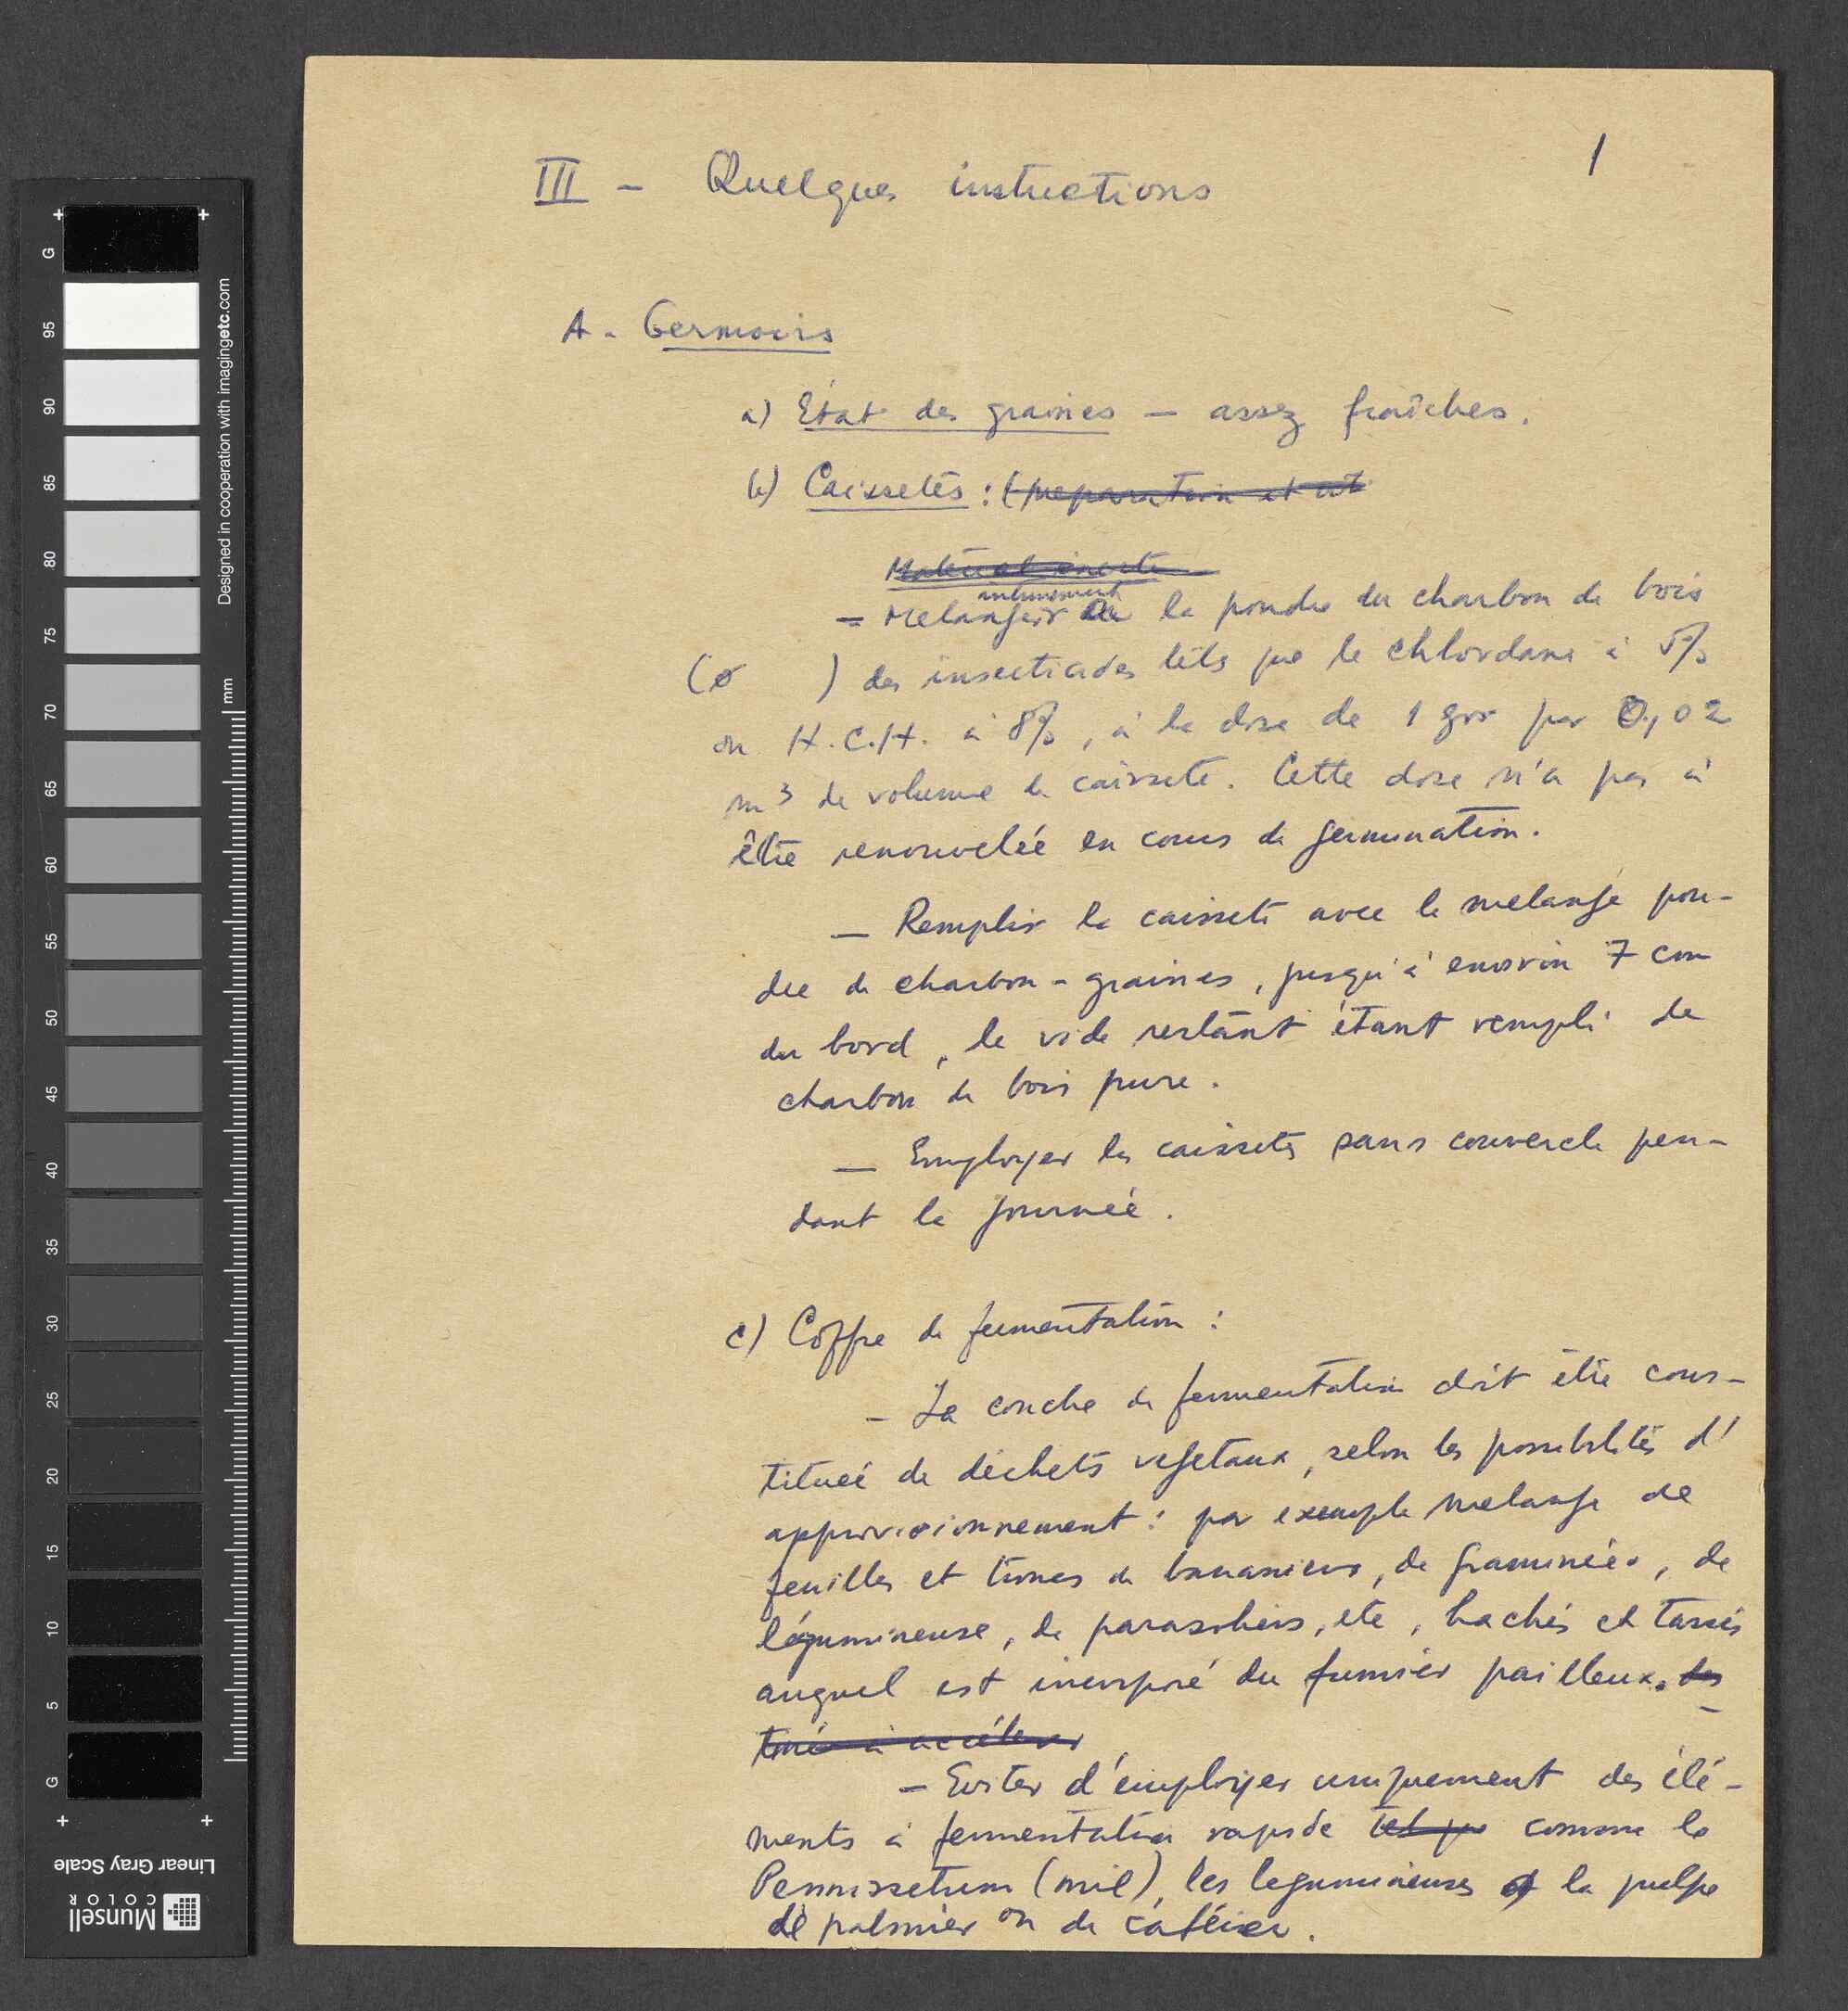 1
III - Quelques instructions
A - Germoirs
a) État des graines — assez fraîches.
b) Caissetes : (préparation et ut
Matériel inerte
intimement
- Melanger à la poudre du charbon de bois
(ø ) des insecticides tels que le chlordane à 5%
ou H.C.H. à 8%, à la dose de 1 grr par 0,02
m3 de volume de caissete. Cette dose n'a pas à
être renouvelée en cours de germination.
— Remplir la caissete avec le melange pou-
dre de charbon - graines, jusqu'à environ 7 cm
du bord, le vide restant étant rempli de
charbon de bois pure.
— Employer les caissetes sans couvercle pen-
dant la journée.
c) Coffre de fermentation :
- La couche de fermentation doit être cons-
tituée de déchets vegetaux, selon les possibilités d'
approvisionnement : par exemple melange de
feuilles et troncs de bananiers, de graminées, de
légumineuse, de parasoliers, etc, hachés et tassés
auquel est incorporé du fumier pailleux. des
tiné à accélerer
- Eviter d'employer uniquement des élé-
ments à fermentation rapide tel que comme le
Pennissetum (mil), les legumineuses et la pulpe
de palmier ou de caféier.
G
95
90
85
80
75
70
65
60
55
50
45
40
35
30
25
20
15
10
5
G
mm
Designed in cooperation with imagingetc.com
Linear Gray Scale
Munsell
COLOR